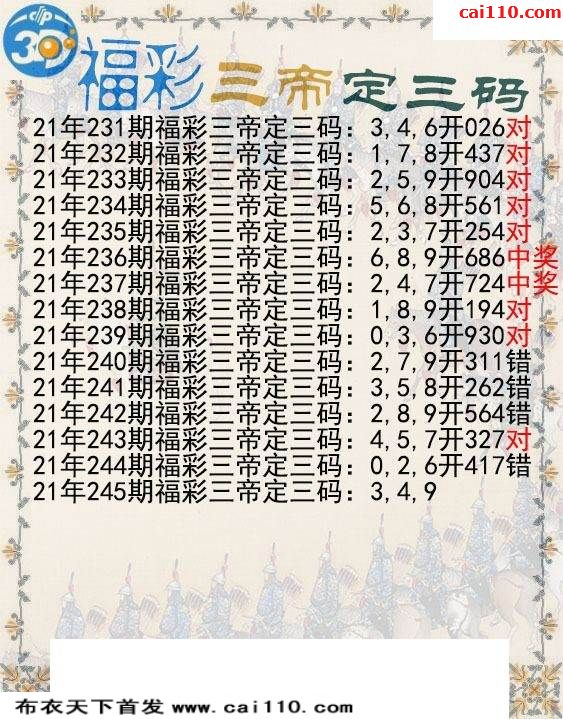 cai110.com
3D
福彩三帝定三码
21年231期福彩三帝定三码: 3,4,6开026对
21年232期福彩三帝定三码: 1,7,8开437对
21年233期福彩三帝定三码: 2,5,9开904对
21年234期福彩三帝定三码: 5,6,8开561对
21年235期福彩三帝定三码: 2,3,7开254对
21年236期福彩三帝定三码: 6,8,9开686中奖
21年237期福彩三帝定三码: 2,4,7开724中奖
21年238期福彩三帝定三码: 1,8,9开194对
21年239期福彩三帝定三码: 0,3,6开930对
21年240期福彩三帝定三码: 2,7,9开311错
21年241期福彩三帝定三码: 3,5,8开262错
21年242期福彩三帝定三码: 2,8,9开564错
21年243期福彩三帝定三码: 4,5,7开327对
21年244期福彩三帝定三码: 0,2,6开417错
21年245期福彩三帝定三码: 3,4,9
布衣天下首发 www.cai110.com